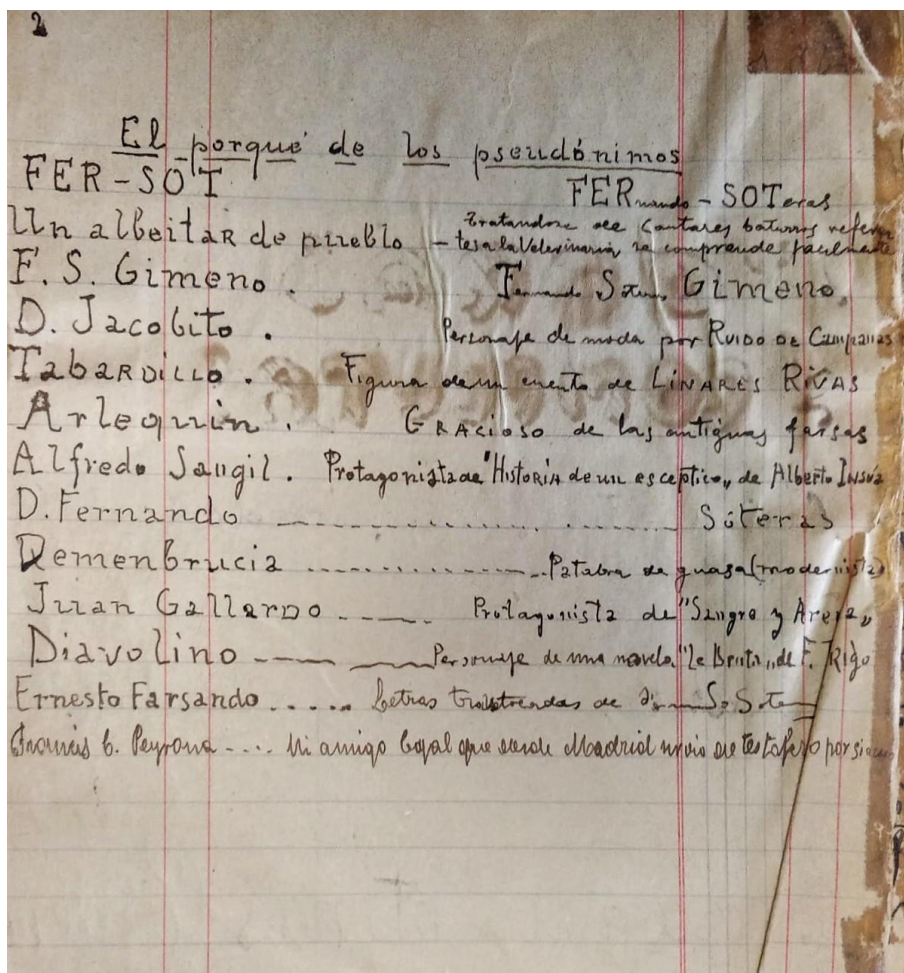 2
El porqué de los pseudónimos
FER-SOT FERnando - SOTeras
Un albeitar de pueblo - tratandose de Cantares baturros referen
tes a la Veterinaria se comprende facilmente
F. S. Gimeno. Fernando Soteras Gimeno.
D. Jacobito. Personaje de moda por Ruido de Campanas
Tabardillo. Figura de un cuento de Linares Rivas
Arlequin. Gracioso de las antiguas farsas
Alfredo Sangil. Protagonista de "Historia de un esceptico" de Alberto Insúa
D. Fernando ........ Sóteras
Demenbrucia ........ Palabra de guasa (modernista)
Juan Gallardo ----. Protagonista de "Sangre y Arena"
Diavolino ---- Personaje de una novela "La Bruta" de F. Trigo
Ernesto Farsando ..... Letras trastocadas de
Peyrona .... Mi amigo que desde Madrid de testafero por si